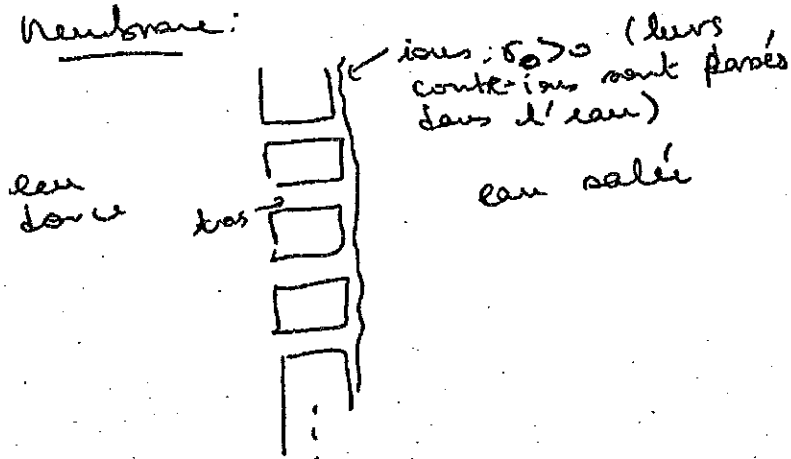 Membrane:
ions: σ₀>0 (leurs
contre-ions sont passés
dans l'eau)
eau
douce
trous
eau salée